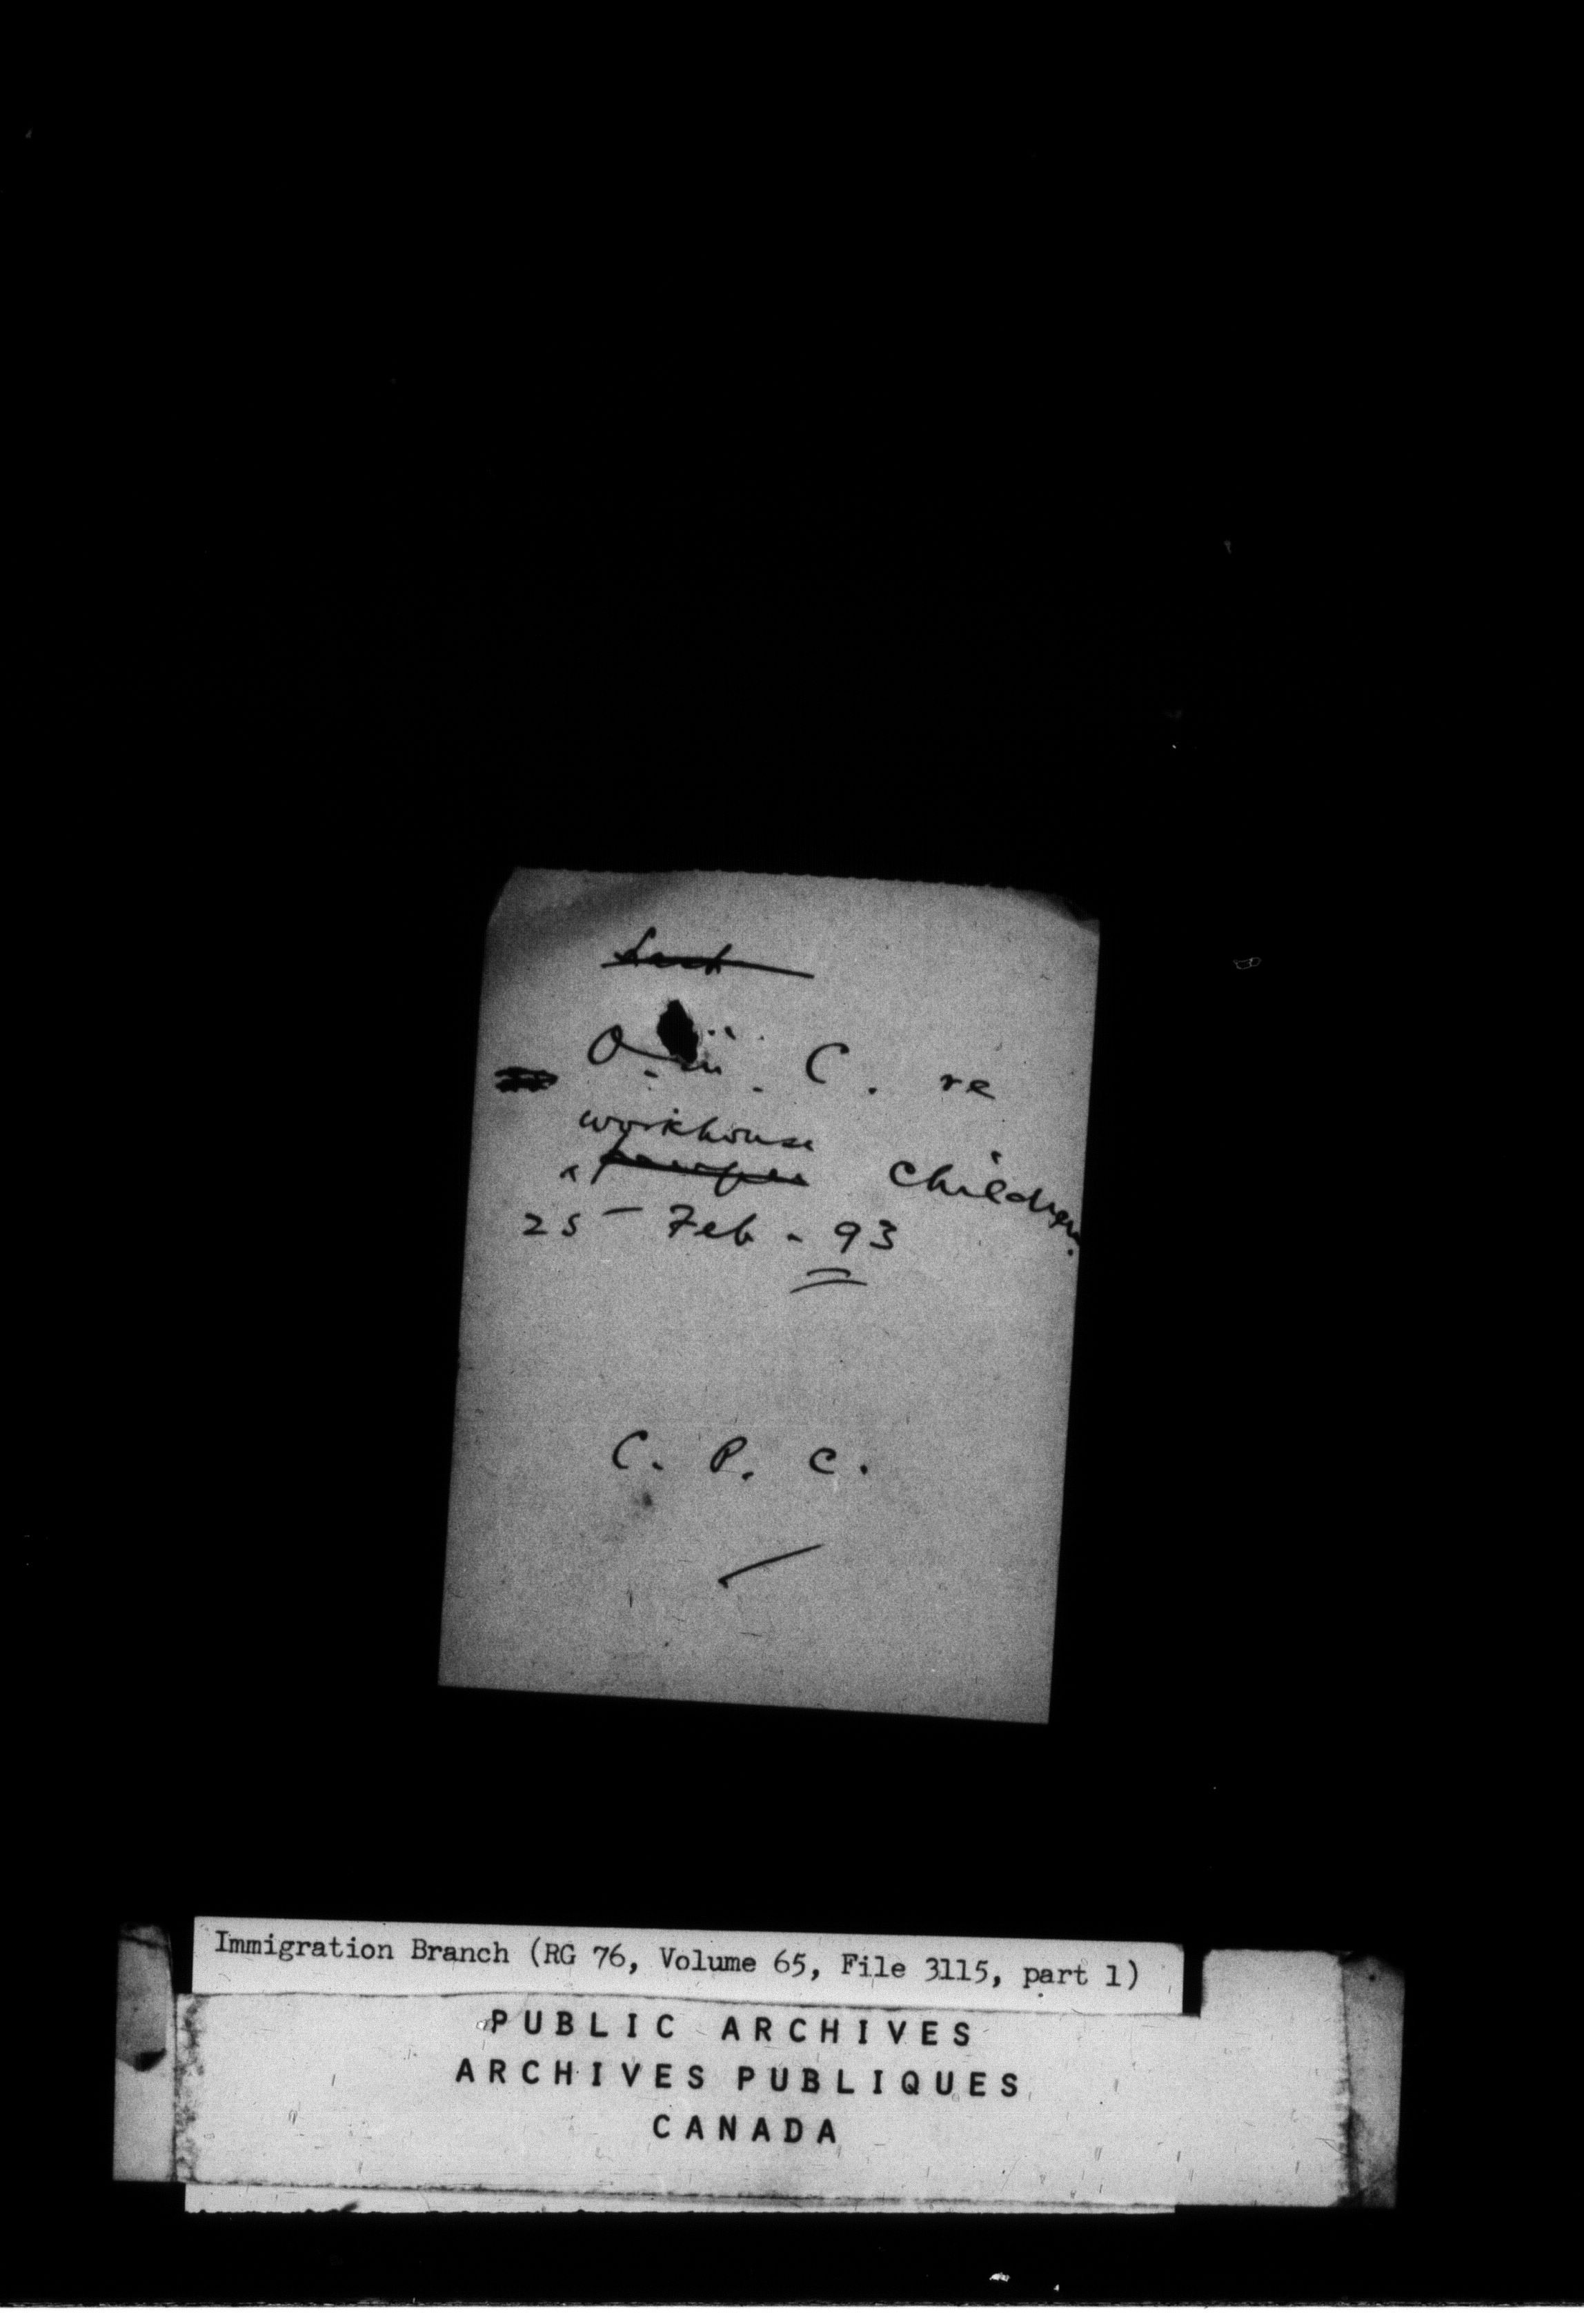 O. in. C. re
workhouse
pauper children.
25 - Feb - 93
C. P. C.
Immigration Branch (RG 76, Volume 65, File 3115, part 1)
PUBLIC ARCHIVES
ARCHIVES PUBLIQUES
CANADA